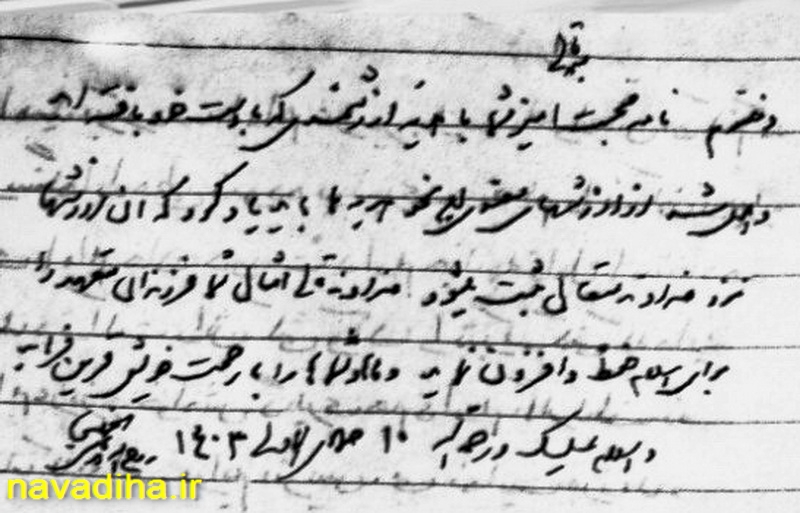 بسمه تعالی
دخترم نامه محبت آمیز شما با هدیه ارزشمندی که با دست خود بافته اید
واصل شد از ارزشهای معنوی این نحو هدیه ها باید یاد کرد که این ارزشها
نزد خداوند متعال ثبت میشود خداوند تعالی امثال شما فرزندان متعهد را
برای اسلام حفظ و افزون نماید و شماها را با رحمت خویش قرین فرماید
والسلام علیک و رحمة الله ۱۰ جمادی الاولی ۱۴۰۳ روح الله الموسوی الخمینی
navadiha.ir